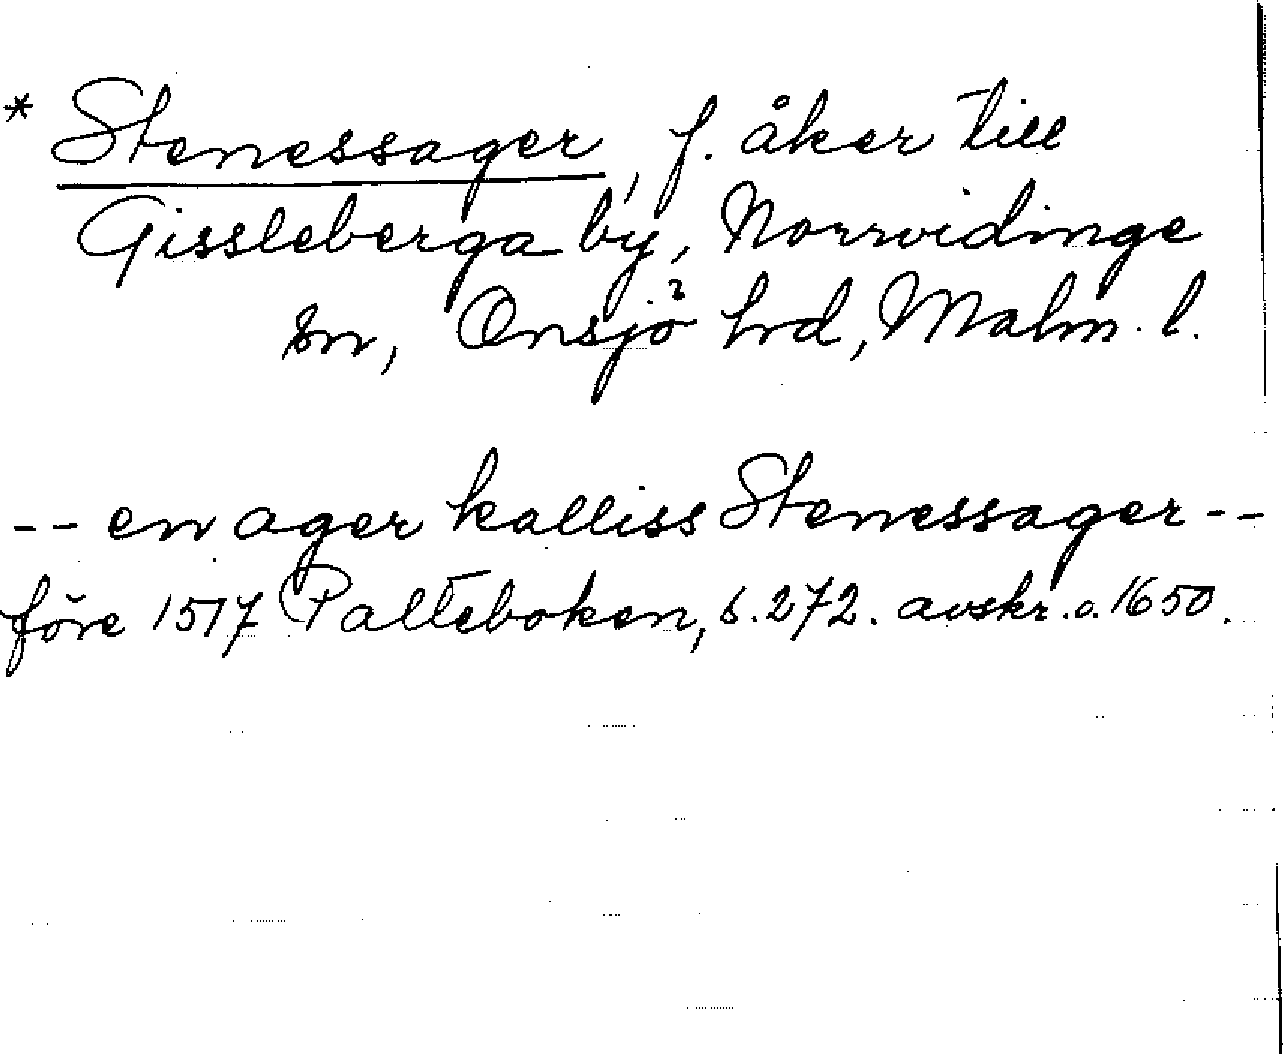 * Stenessager, f. åker till
Gissleberga by, Norrvidinge
sn, Onsjö hrd, Malm. l.
-- en ager kalliss Stenessager --
före 1517 Palteboken, s. 272. avskr. o. 1650.